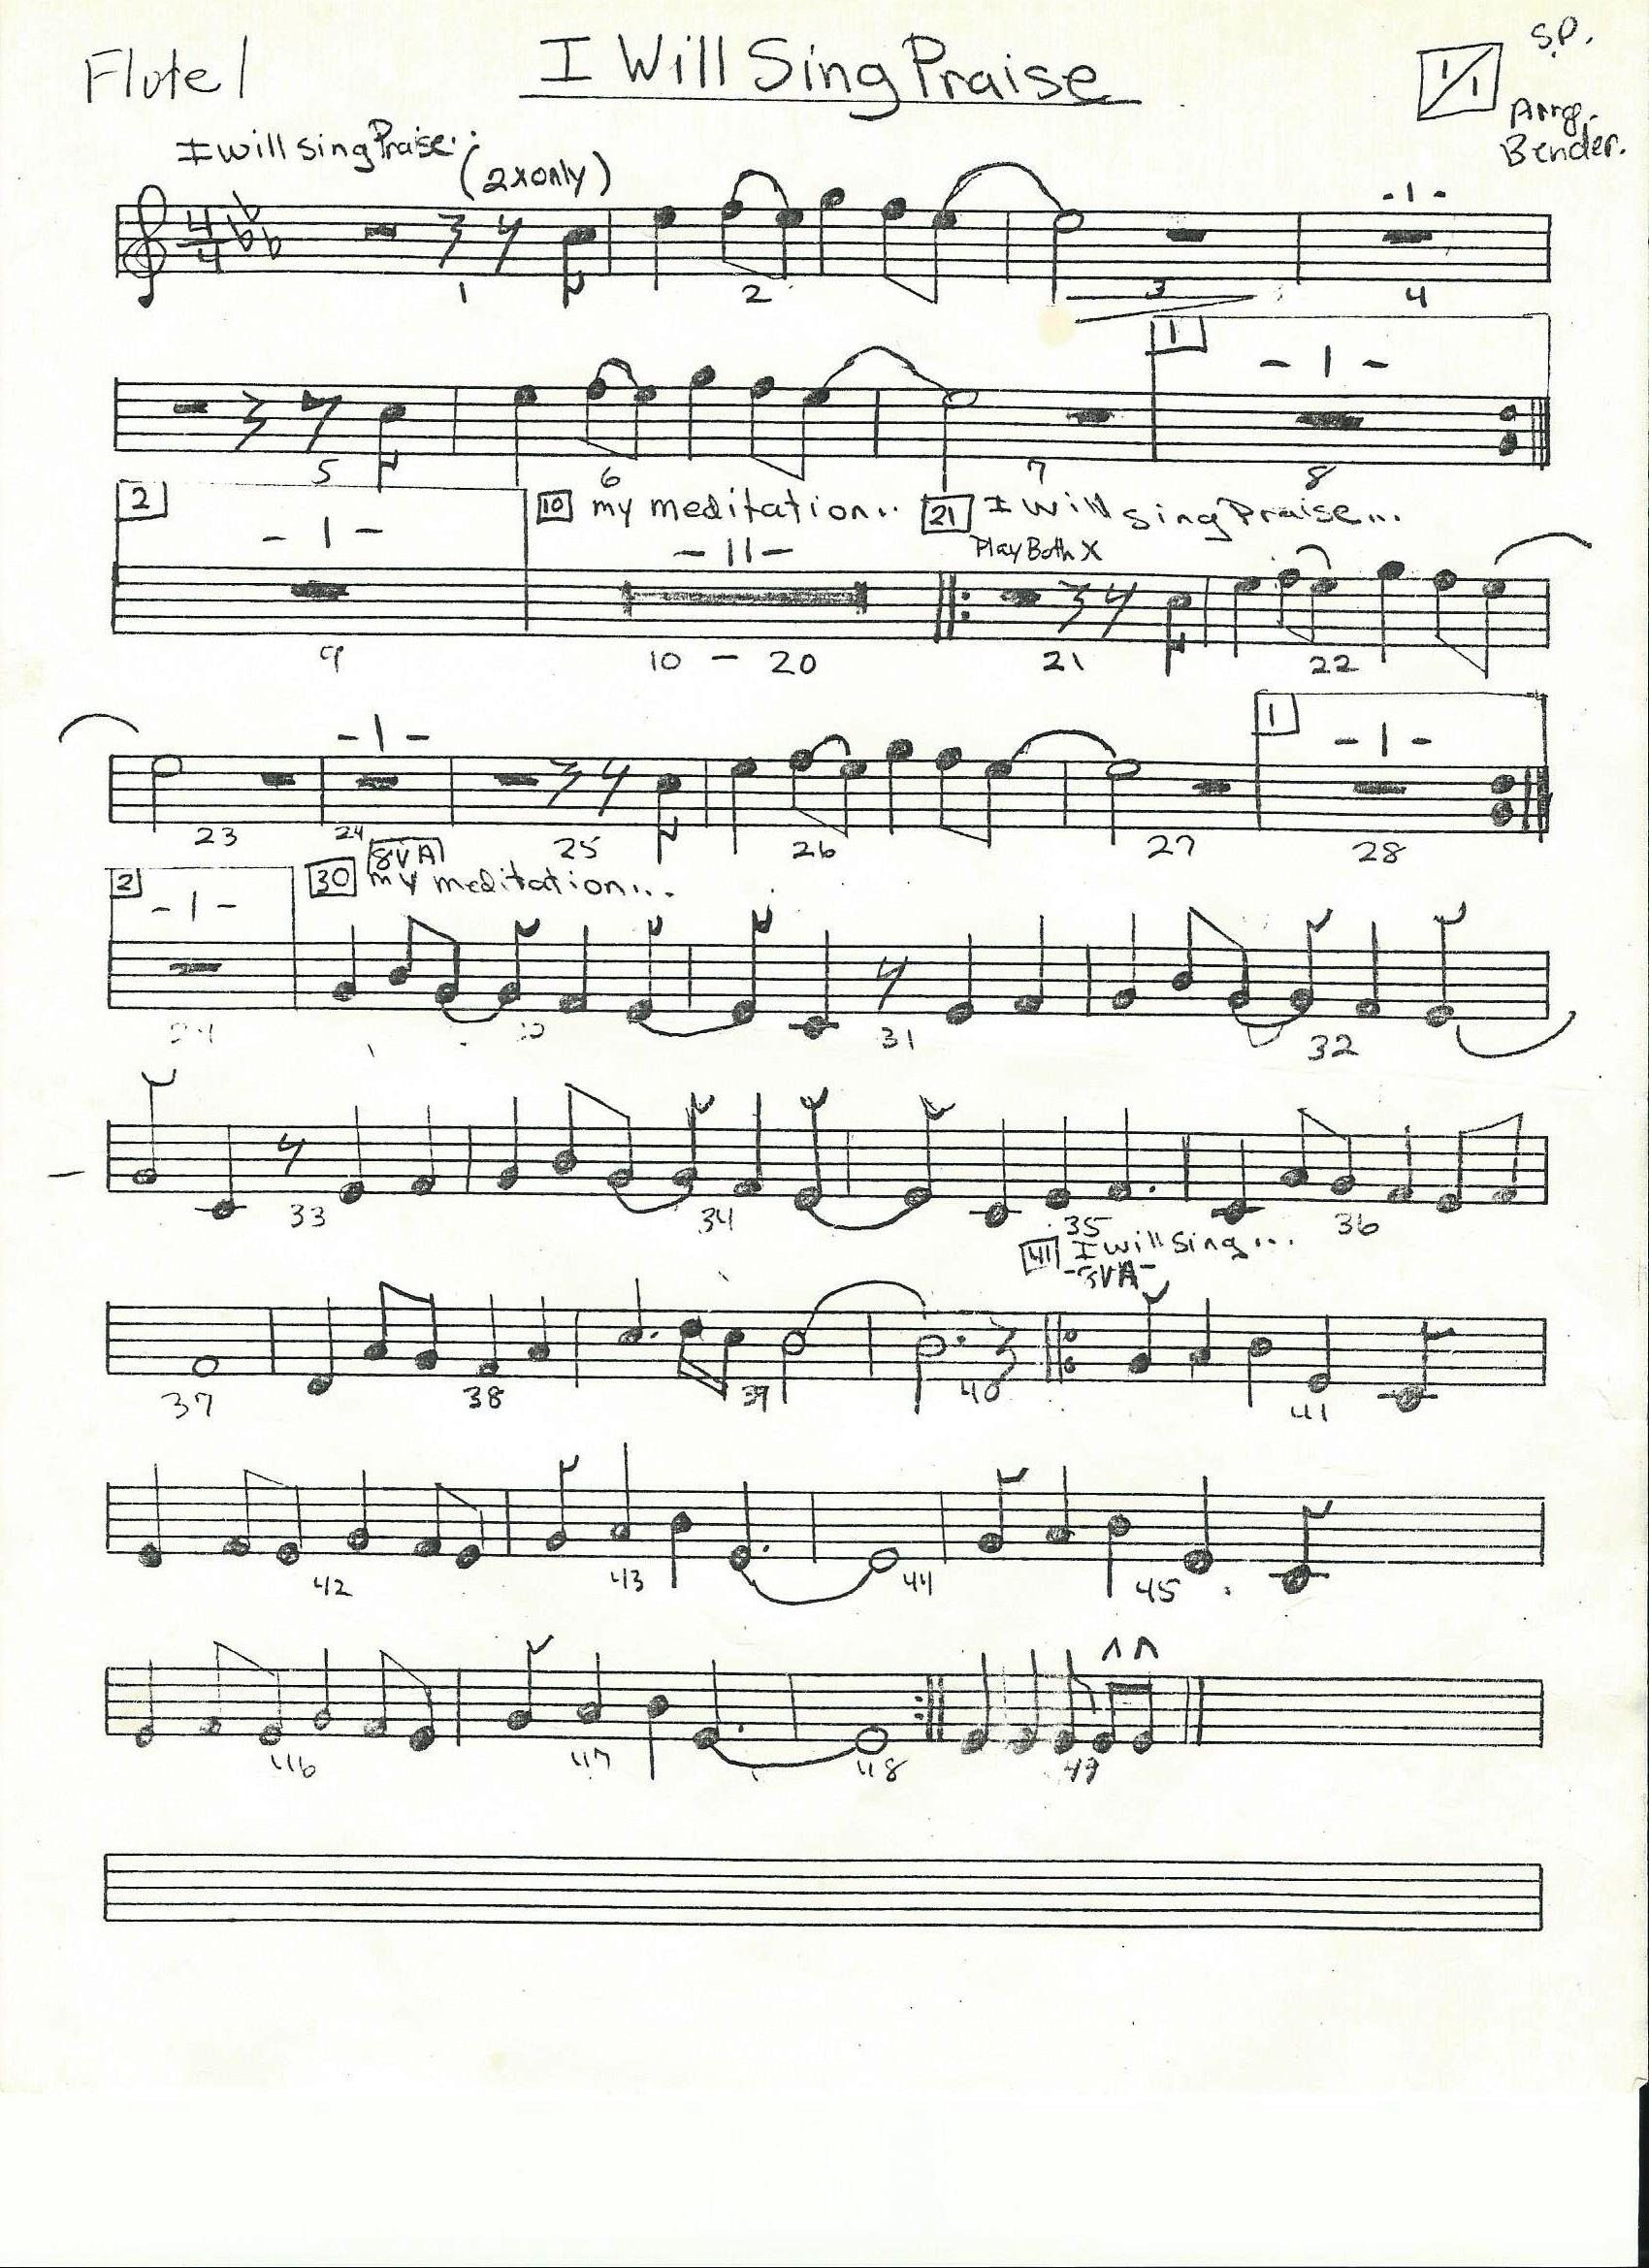 S.P.
Flute 1
I Will Sing Praise
1/1
Arrg.
Bender.
I will sing Praise..
(2x only)
- 1 -
4/4
1 2 3 4
1
- 1 -
5 6 7 8
2
- 1 -
10 my meditation..
- 11 -
21 I will sing Praise...
Play Both X
9 10 - 20 21 22
- 1 -
1
- 1 -
23 24 25 26 27 28
8VA
2
- 1 -
30 my meditation...
31 32
33 34 35 36
41 I will Sing...
37 38 39 40 41
42 43 44 45
46 47 48 49